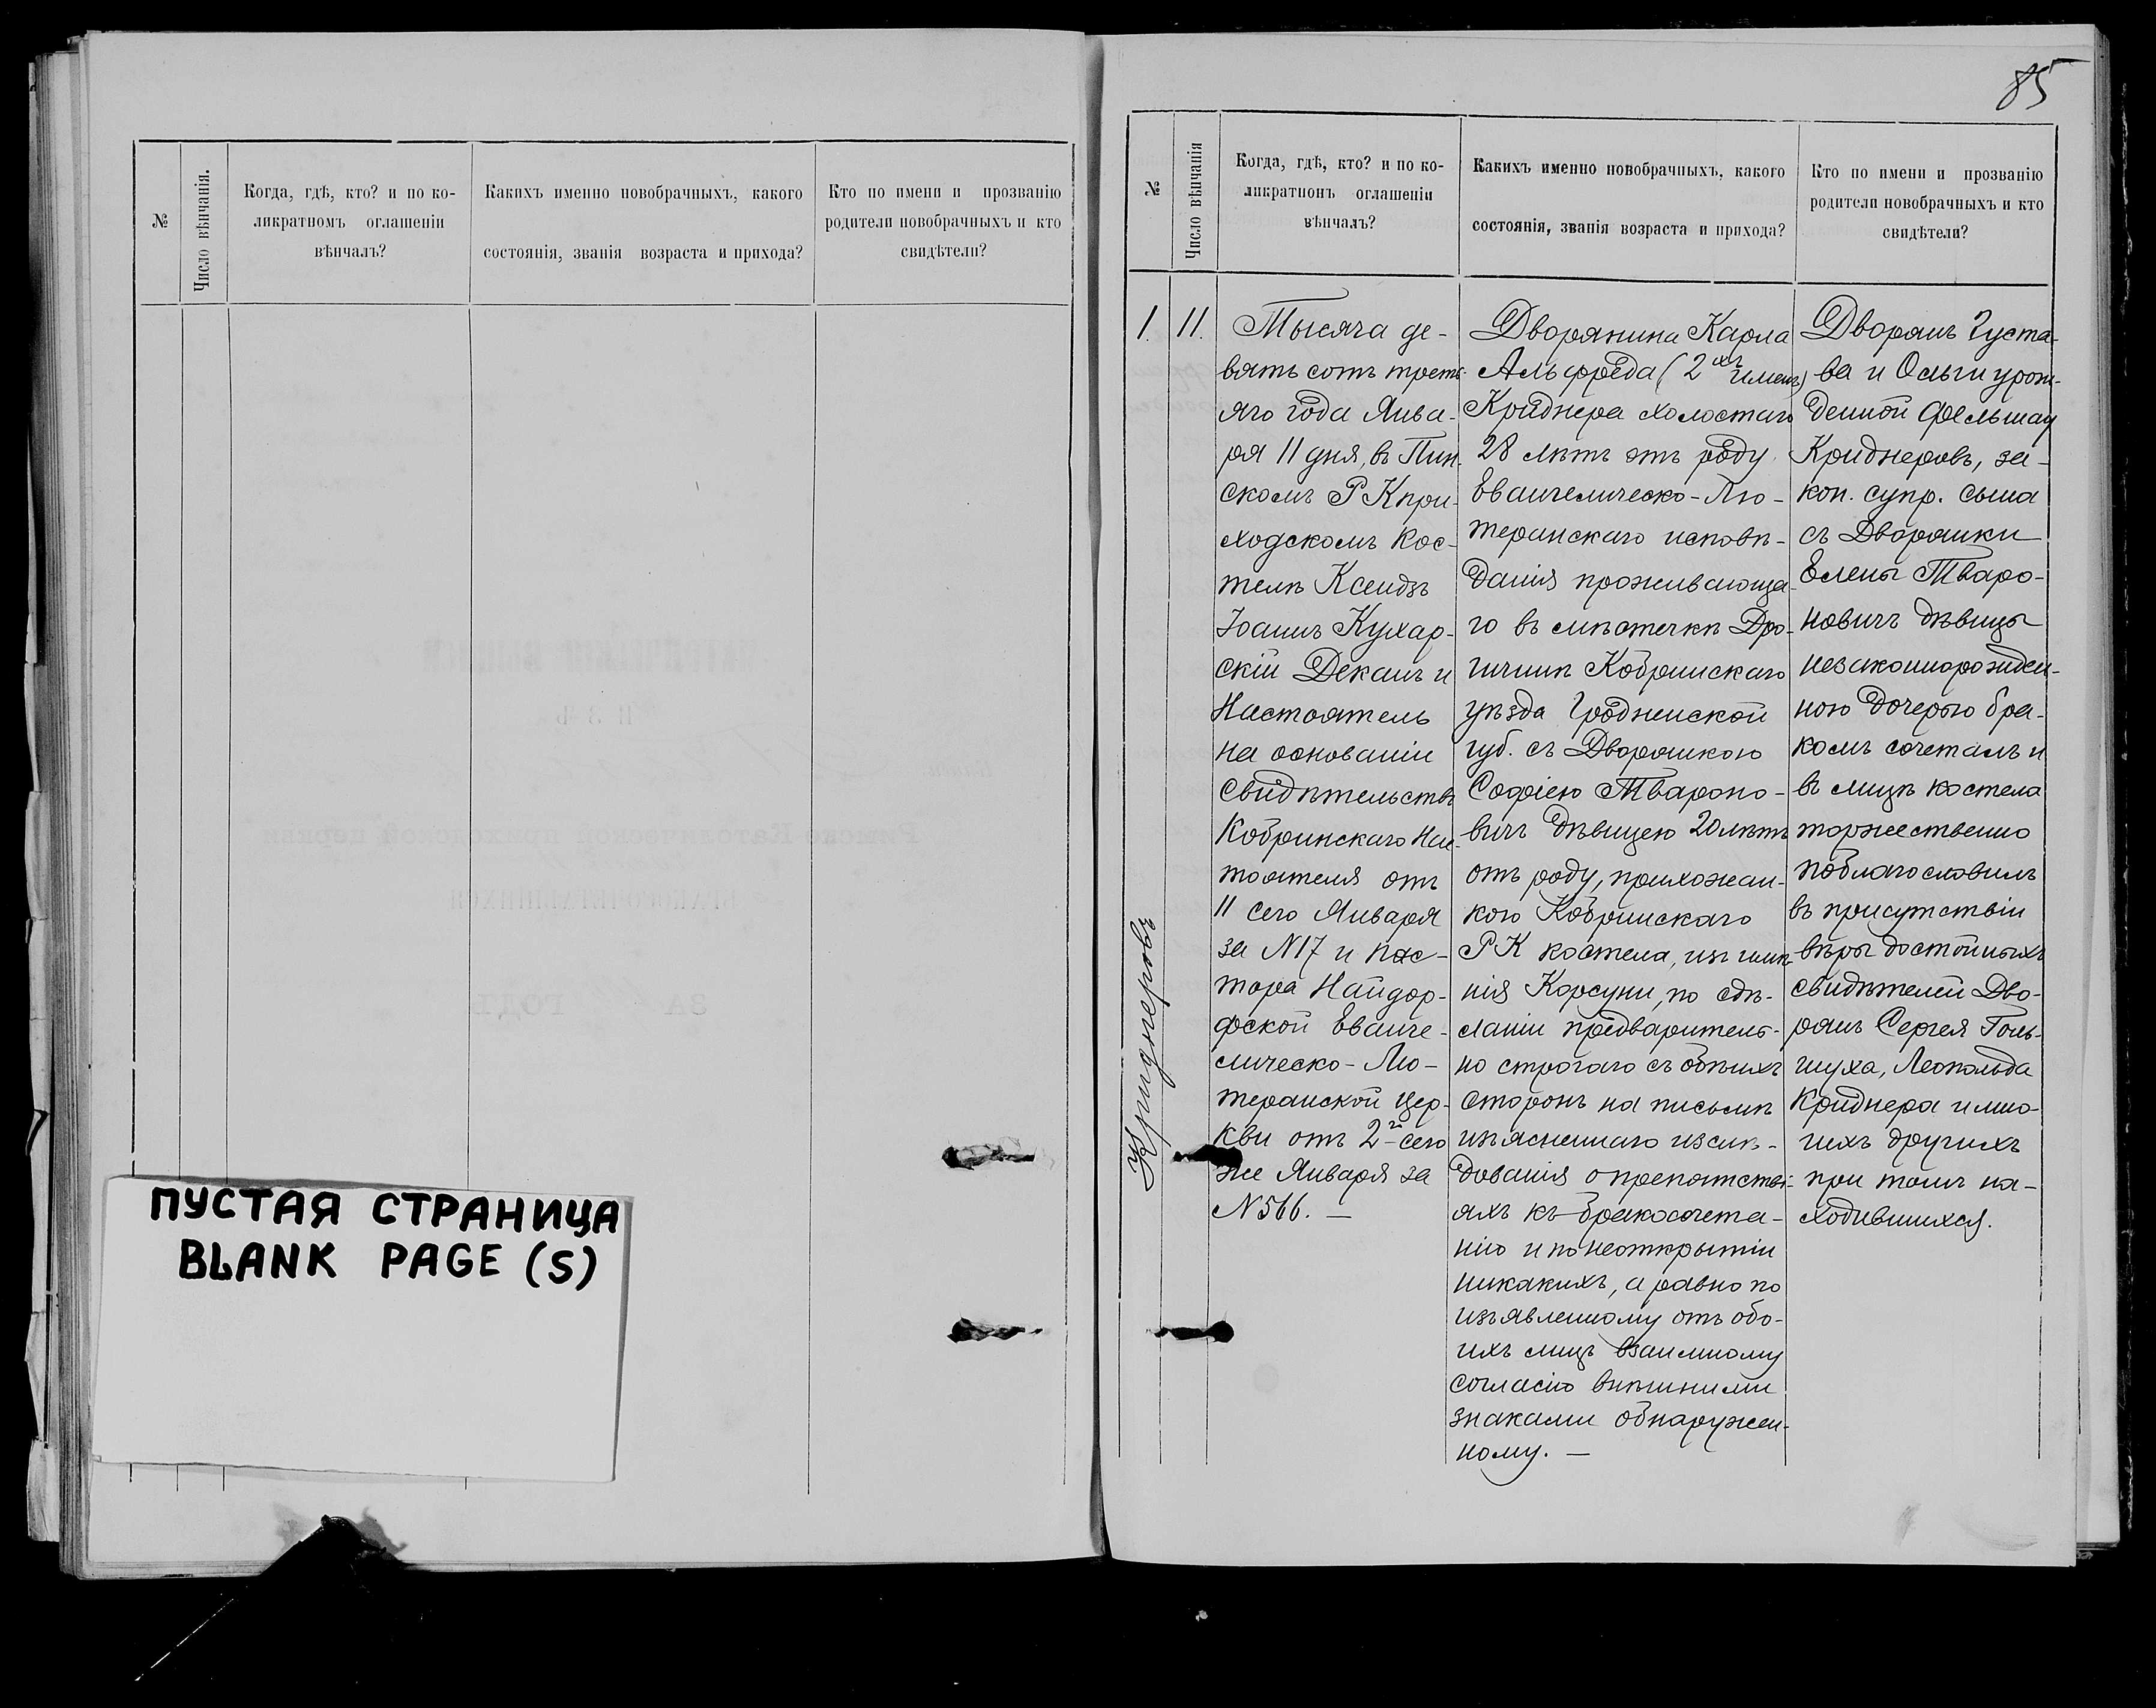 №
Число вѣнчанія.
Когда, гдѣ, кто? и по ко-
ликратномъ оглашеніи
вѣнчалъ?
Какихъ именно новобрачныхъ, какого
состоянія, званія возраста и прихода?
Кто по имени и прозванію
родители новобрачныхъ и кто
свидѣтели?
ПУСТАЯ СТРАНИЦА
BLANK PAGE (S)
85
№
Число вѣнчанія
Когда, гдѣ, кто? и по ко-
ликратномъ оглашеніи
вѣнчалъ?
Какихъ именно новобрачныхъ, какого
состоянія, званія возраста и прихода?
Кто по имени и прозванію
родители новобрачныхъ и кто
свидѣтели?
1.
Криднеровъ
11.
Тысяча де-
вять сотъ треть-
яго года Янва-
ря 11 дня, въ Пин-
скомъ Р К при-
ходскомъ Кос-
телѣ Ксендзъ
Іоаннъ Кухар-
скій Деканъ и
Настоятель
на основаніи
Свидѣтельствъ
Кобринскаго Нас-
тоятеля отъ
11 сего Января
за N 17 и пас-
тора Найдор-
фской Еванге-
лическо-Лю-
теранской Цер-
кви отъ 2-г сего
же Января за
N 566. —
Дворянина Карла
Альфреда (2 ихъ именъ)
Криднера холостаго
28 лѣтъ отъ роду
Евангелическо-Лю-
теранскаго исповѣ-
данія проживающа-
го въ мѣстечкѣ Дро-
гичинѣ Кобринскаго
уѣзда Гродненской
губ. съ Дворянкою
Софіею Твароно-
вичъ Дѣвицею 20 лѣтъ
отъ роду, прихожан-
кою Кобринскаго
Р К костела, изъ имѣ-
нія Корсуни, по сдѣ-
ланіи предваритель-
но строгаго съ обѣихъ
сторонъ на письмѣ
изъясненнаго изслѣ-
дованія о препятстві-
яхъ къ бракосочета-
нію и по неоткрытіи
никакихъ, а равно по
изъявленному отъ обо-
ихъ лицъ взаимному
согласію внѣшними
знаками обнаружен-
ному. —
Дворянъ Густа-
ва и Ольги урож-
денной
Криднеровъ, за-
кон. супр. сына
съ Дворянки
Елены Тваро-
новичъ дѣвицы
незаконнорожден-
ною дочерью бра-
комъ сочеталъ и
въ лицѣ костела
торжественно
поблагословилъ
въ присутствіи
вѣры достойныхъ
свидѣтелей Дво-
рянъ Сергея Голь-
шуха, Леопольда
Криднера и мно-
гихъ другихъ
при томъ на-
ходившихся.